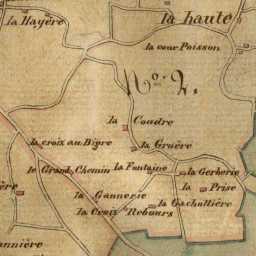 la haute
la Hayère
la cour Poisson
N.º 2.
la Coudre
la croix au Bigre
la Gruère
le Grand Chemin
la Fontaine
la Gerberie
la Prise
la Gannerie
la Gachottière
la Croix Rebours